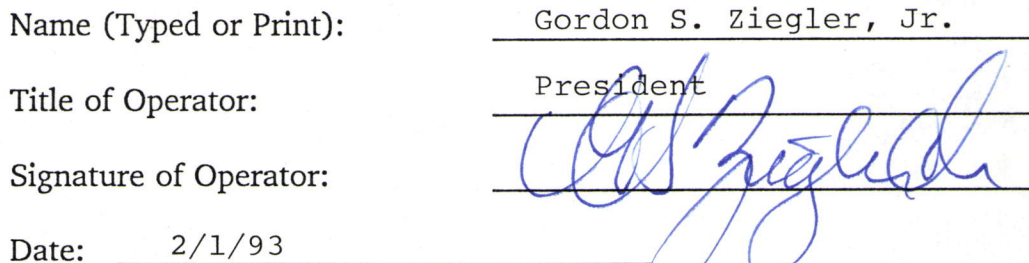 Name (Typed or Print): Gordon S. Ziegler, Jr.
Title of Operator: President
Signature of Operator: GS Ziegler Jr
Date: 2/1/93